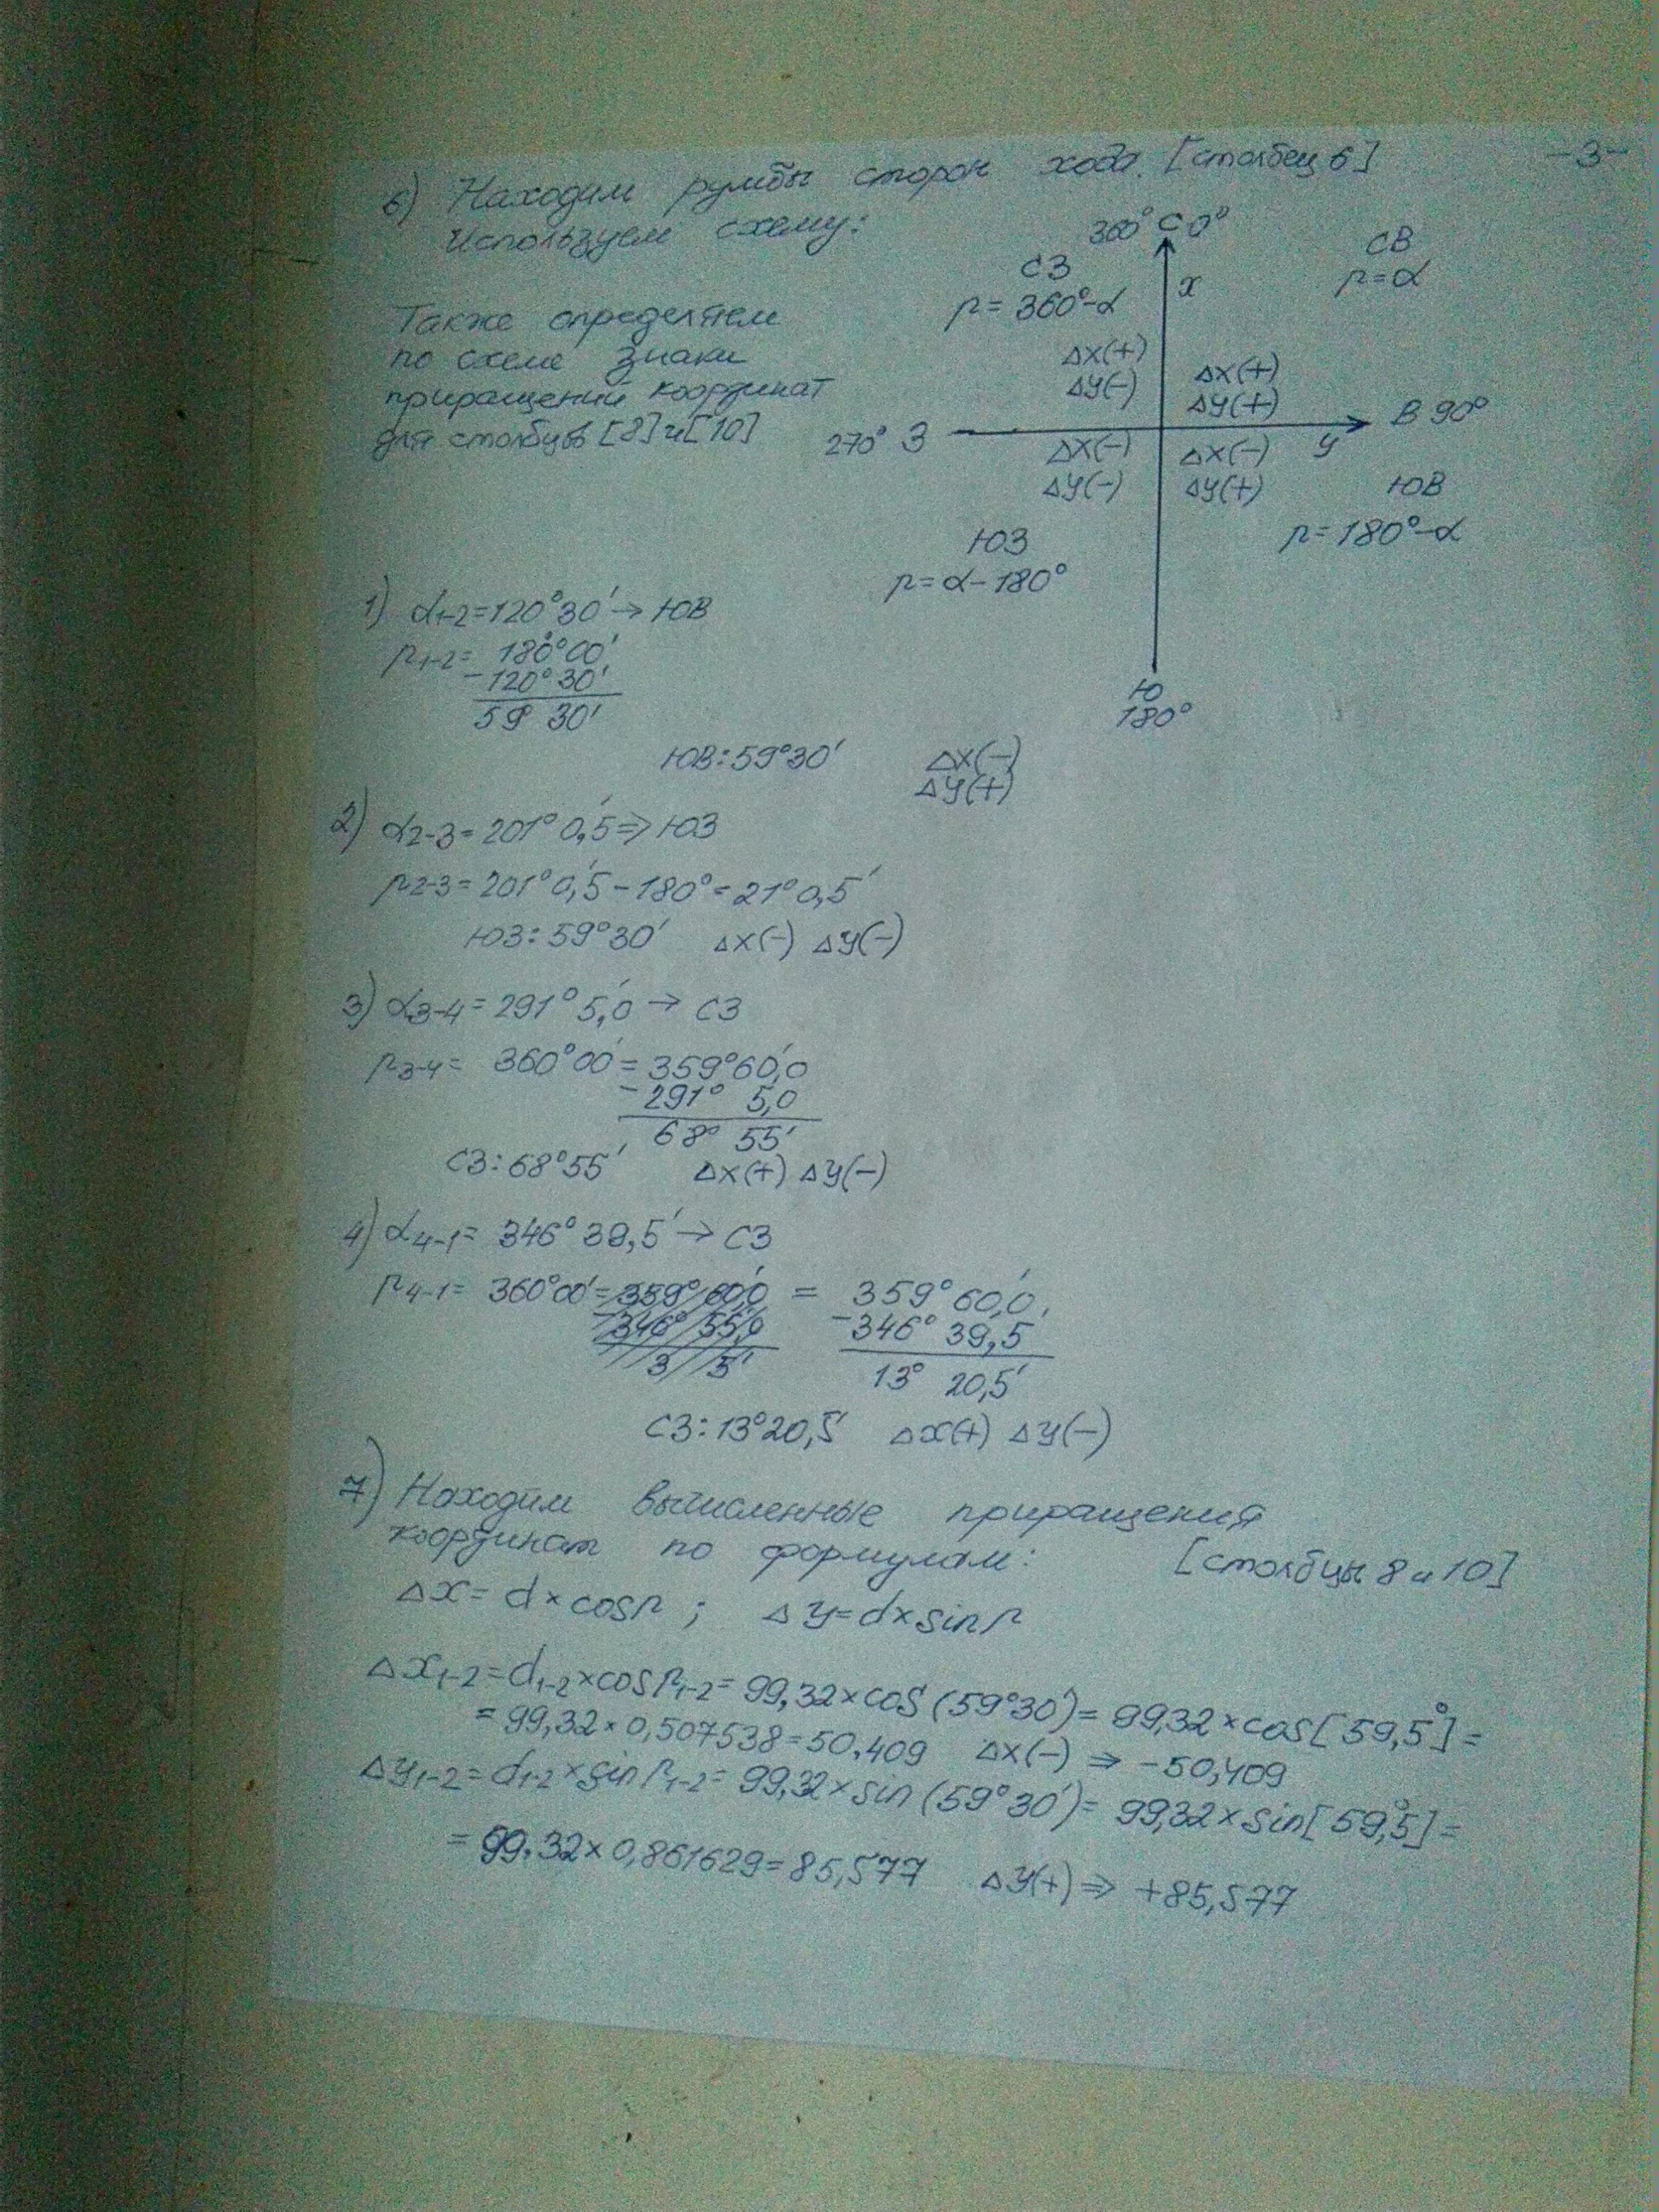 -3-
6) Находим румбы сторон хода. [столбец 6]
Используем схему:
360° С 0°
СВ
r=α
СЗ
r=360°-α
x
Также определяем
по схеме знаки
приращений координат
для столбцов [8] и [10]
Δx(+)
Δy(-)
Δx(+)
Δy(+)
270° З
В 90°
y
Δx(-)
Δy(-)
Δx(-)
Δy(+)
ЮВ
r=180°-α
ЮЗ
r=α-180°
Ю
180°
1) α1-2=120°30'→ЮВ
r1-2= 180°00'
-120°30'
59° 30'
ЮВ:59°30' Δx(-)
Δy(+)
2) α2-3=201°0,5'⇒ЮЗ
r2-3=201°0,5'-180°=21°0,5'
ЮЗ:59°30' Δx(-) Δy(-)
3) α3-4=291°5,0'→СЗ
r3-4= 360°00'=359°60,0'
-291° 5,0
68° 55'
СЗ:68°55' Δx(+) Δy(-)
4) α4-1= 346°39,5'→СЗ
r4-1= 360°00'=359°60,0' = 359°60,0'
-346° 55,0 -346°39,5'
3 5' 13° 20,5'
СЗ:13°20,5' Δx(+) Δy(-)
7) Находим вычисленные приращения
координат по формулам: [столбцы 8 и 10]
Δx=d×cosr; Δy=d×sinr
Δx1-2=d1-2×cosr1-2=99,32×cos(59°30')=99,32×cos[59,5°]=
=99,32×0,507538=50,409 Δx(-)⇒-50,409
Δy1-2=d1-2×sinr1-2=99,32×sin(59°30')=99,32×sin[59,5°]=
=99,32×0,861629=85,577 Δy(+)⇒+85,577